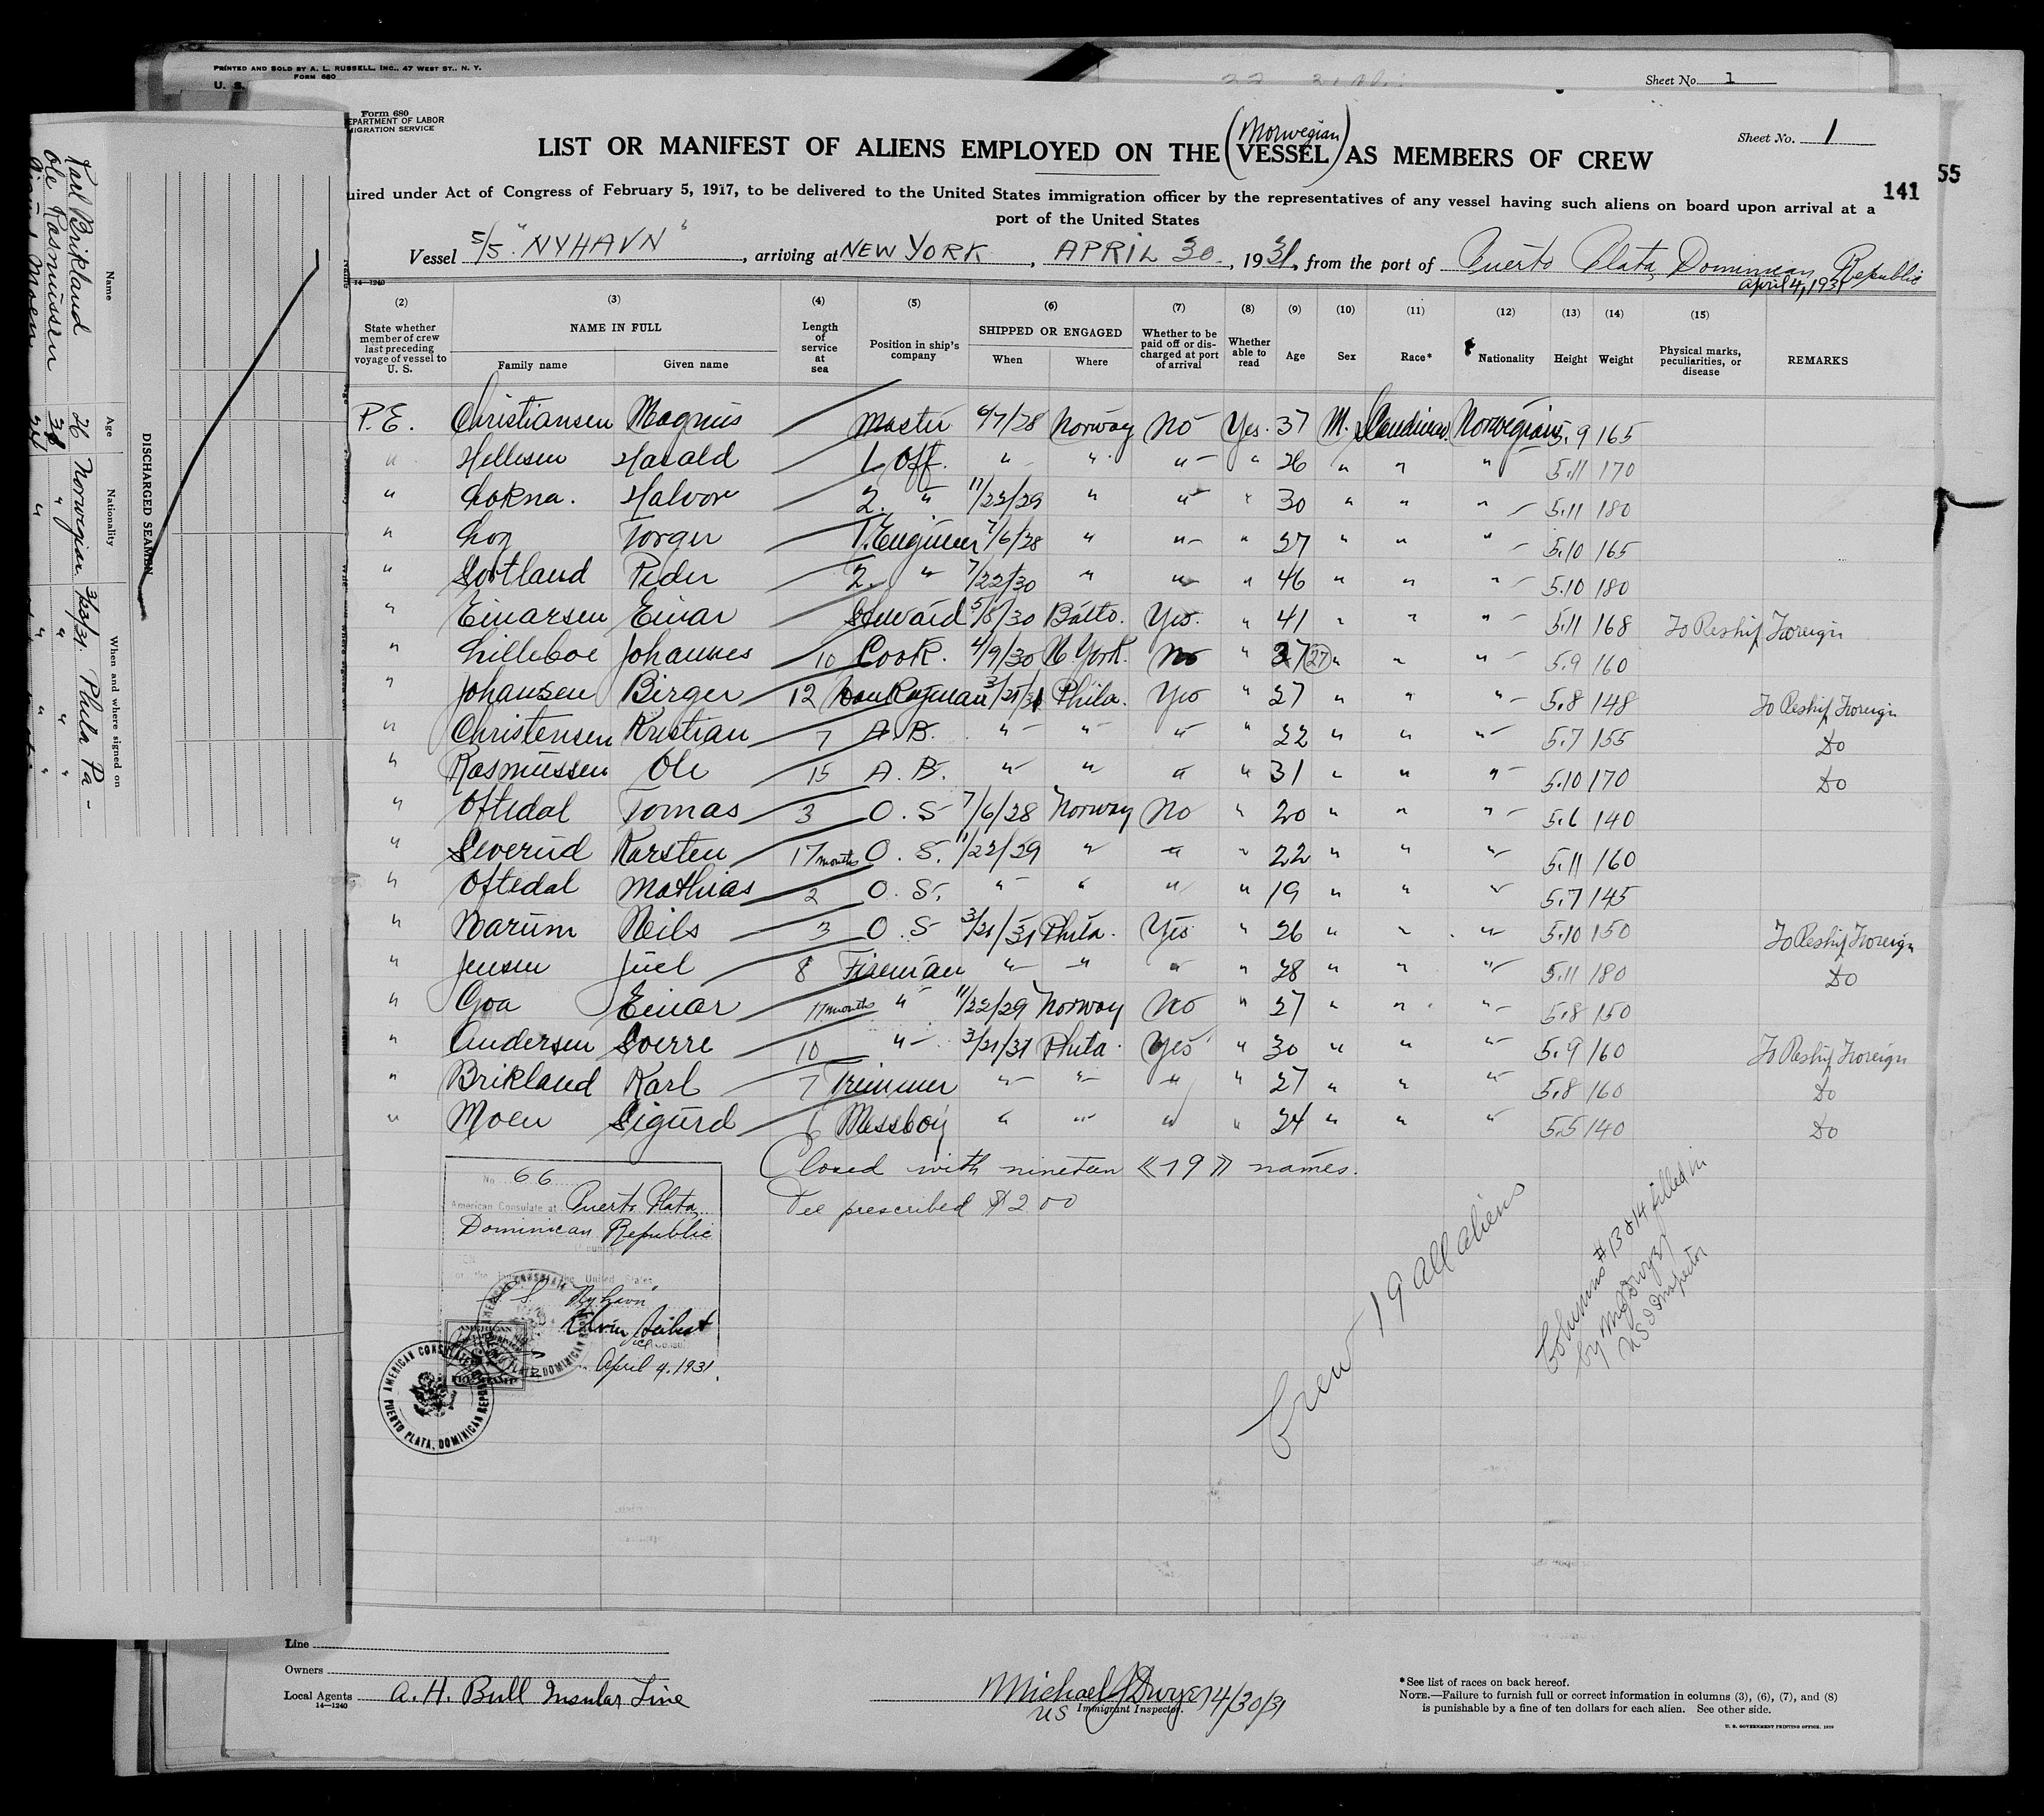 PRINTED AND SOLD BY A. L. RUSSELL, INC., 47 WEST ST., N. Y.
FORM 680
U. S.
Sheet No. 1
Form 680
EPARTMENT OF LABOR
MIGRATION SERVICE
Sheet No. 1
LIST OR MANIFEST OF ALIENS EMPLOYED ON THE (Norwegian VESSEL) AS MEMBERS OF CREW
55
141
uired under Act of Congress of February 5, 1917, to be delivered to the United States immigration officer by the representatives of any vessel having such aliens on board upon arrival at a
port of the United States
Vessel S/S "NYHAVN", arriving at NEW YORK, APRIL 30, 1931, from the port of Puerto Plata, Dominican Republic
April 4, 1931
14—1240
(2) (3) (4) (5) (6) (7) (8) (9) (10) (11) (12) (13) (14) (15)
State whether member of crew last preceding voyage of vessel to U. S. NAME IN FULL Family name Given name Length of service at sea Position in ship's company SHIPPED OR ENGAGED When Where Whether to be paid off or discharged at port of arrival Whether able to read Age Sex Race* Nationality Height Weight Physical marks, peculiarities, or disease REMARKS
P.E. Christiansen Magnus Master 6/7/28 Norway No Yes. 37 M. Scandinav. Norwegian 5.9 165
" Hellesen Harald 1 Off. " " " " 26 " " " 5.11 170
" Lokna. Halvor 2. " 11/22/29 " " " 30 " " " 5.11 180
" Loy Torger 1. Engineer 7/6/28 " " " 27 " " " 5.10 165
" Sortland Peder 2. " 7/22/30 " " " 46 " " " 5.10 180
" Einarsen Einar Steward 5/5/30 Balto. Yes. " 41 " " " 5.11 168 To Reship Foreign
" Lilleboe Johannes 10 Cook. 4/9/30 N. York. No " 27 (27) " " " 5.9 160
" Johansen Birger 12 Donkeyman 3/21/31 Phila. Yes " 27 " " " 5.8 148 To Reship Foreign
" Christensen Kristian 7 A.B. " " " " 22 " " " 5.7 155 Do
" Rasmussen Ole 15 A.B. " " " " 31 " " " 5.10 170 Do
" Oftedal Tomas 3 O.S 7/6/28 Norway No " 20 " " " 5.6 140
" Severud Karsten 17 months O.S. 11/22/29 " " " 22 " " " 5.11 160
" Oftedal Mathias 2 O.S. " " " " 19 " " " 5.7 145
" Narum Neils 3 O.S 3/21/31 Phila. Yes " 26 " " " 5.10 150 To Reship Foreign
" Jensen Juel 8 Fireman " " " " 28 " " " 5.11 180 Do
" Goa Einar 17 months " 11/22/29 Norway No " 27 " " " 5.8 150
" Andersen Sverre 10 " 3/21/31 Phila. Yes " 30 " " " 5.9 160 To Reship Foreign
" Brikland Karl 7 Trimmer " " " " 27 " " " 5.8 160 Do
" Moen Sigurd 6 Messboy " " " " 24 " " " 5.5 140 Do
Closed with nineteen «19» names.
Fee prescribed $2.00
No. 66
American Consulate at Puerto Plata,
Dominican Republic
S. S. "Nyhavn"
April 4, 1931.
AMERICAN CONSULATE
PUERTO PLATA, DOMINICAN REPUBLIC
Crew 19 all aliens
Columns #13 & 14 filled in
by M J Dwyer
U S I Inspector
Line
Owners
Local Agents A. H. Bull Insular Line
14—1240
Michael J Dwyer 4/30/31
US Immigrant Inspector.
*See list of races on back hereof.
NOTE.—Failure to furnish full or correct information in columns (3), (6), (7), and (8)
is punishable by a fine of ten dollars for each alien. See other side.
U. S. GOVERNMENT PRINTING OFFICE, 1929
DISCHARGED SEAMEN
Name Age Nationality When and where signed on
Karl Brikland 26 Norwegian 3/23/31. Phila Pa -
Ole Rasmussen 31 " " "
Sigurd Moen 24 " " "